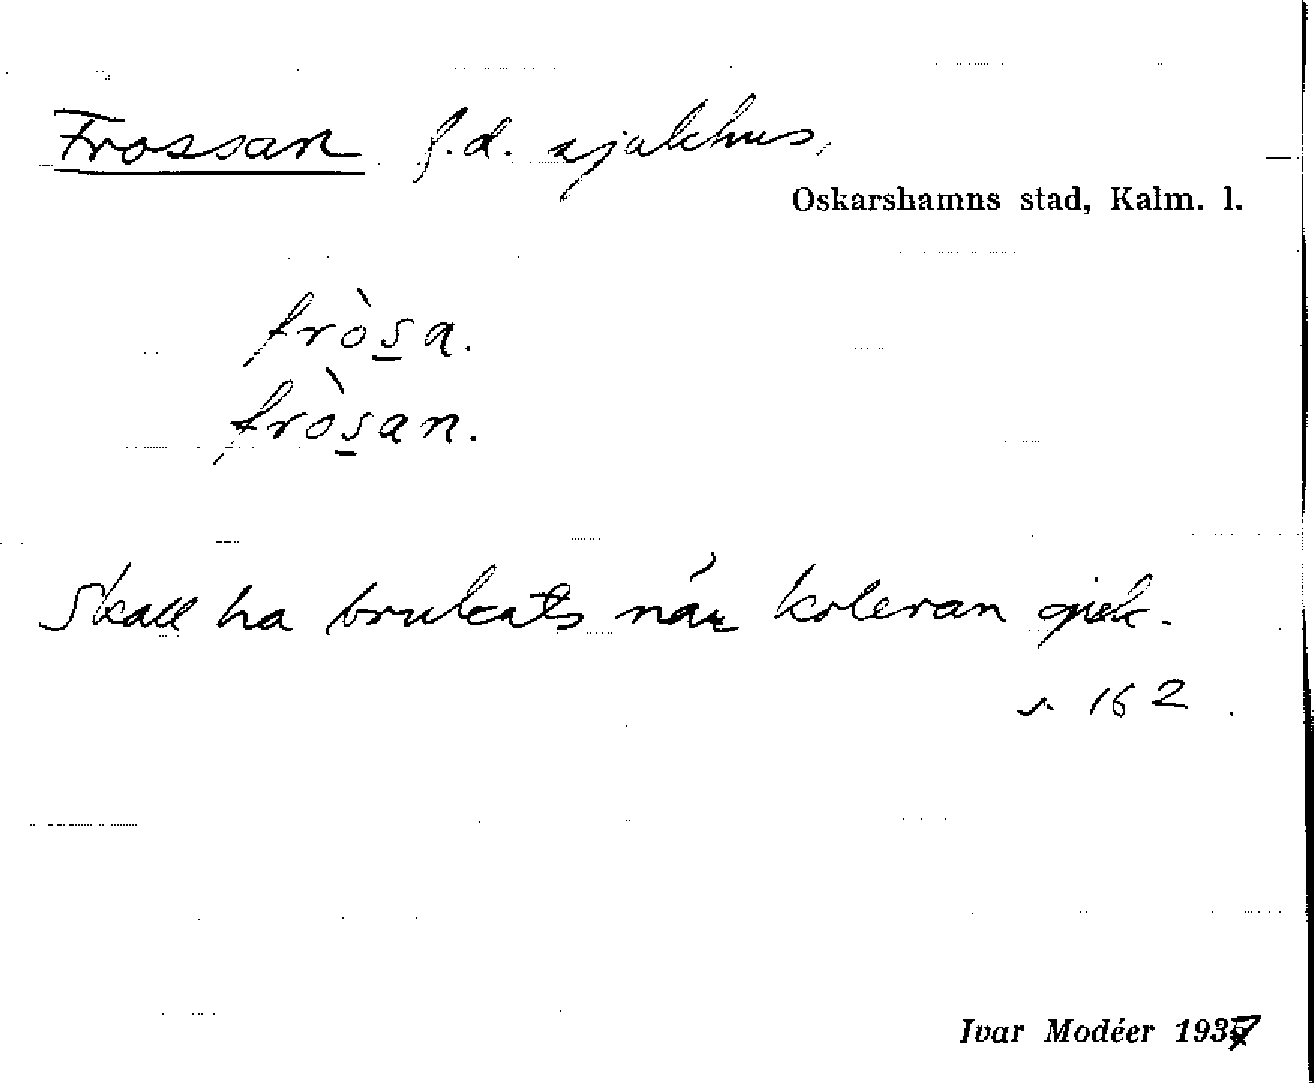 Frossan f.d. sjukhus,
Oskarshamns stad, Kalm. l.
fròsa.
fròsan.
Skall ha brukats när koleran gick.
s. 162.
Ivar Modéer 1937